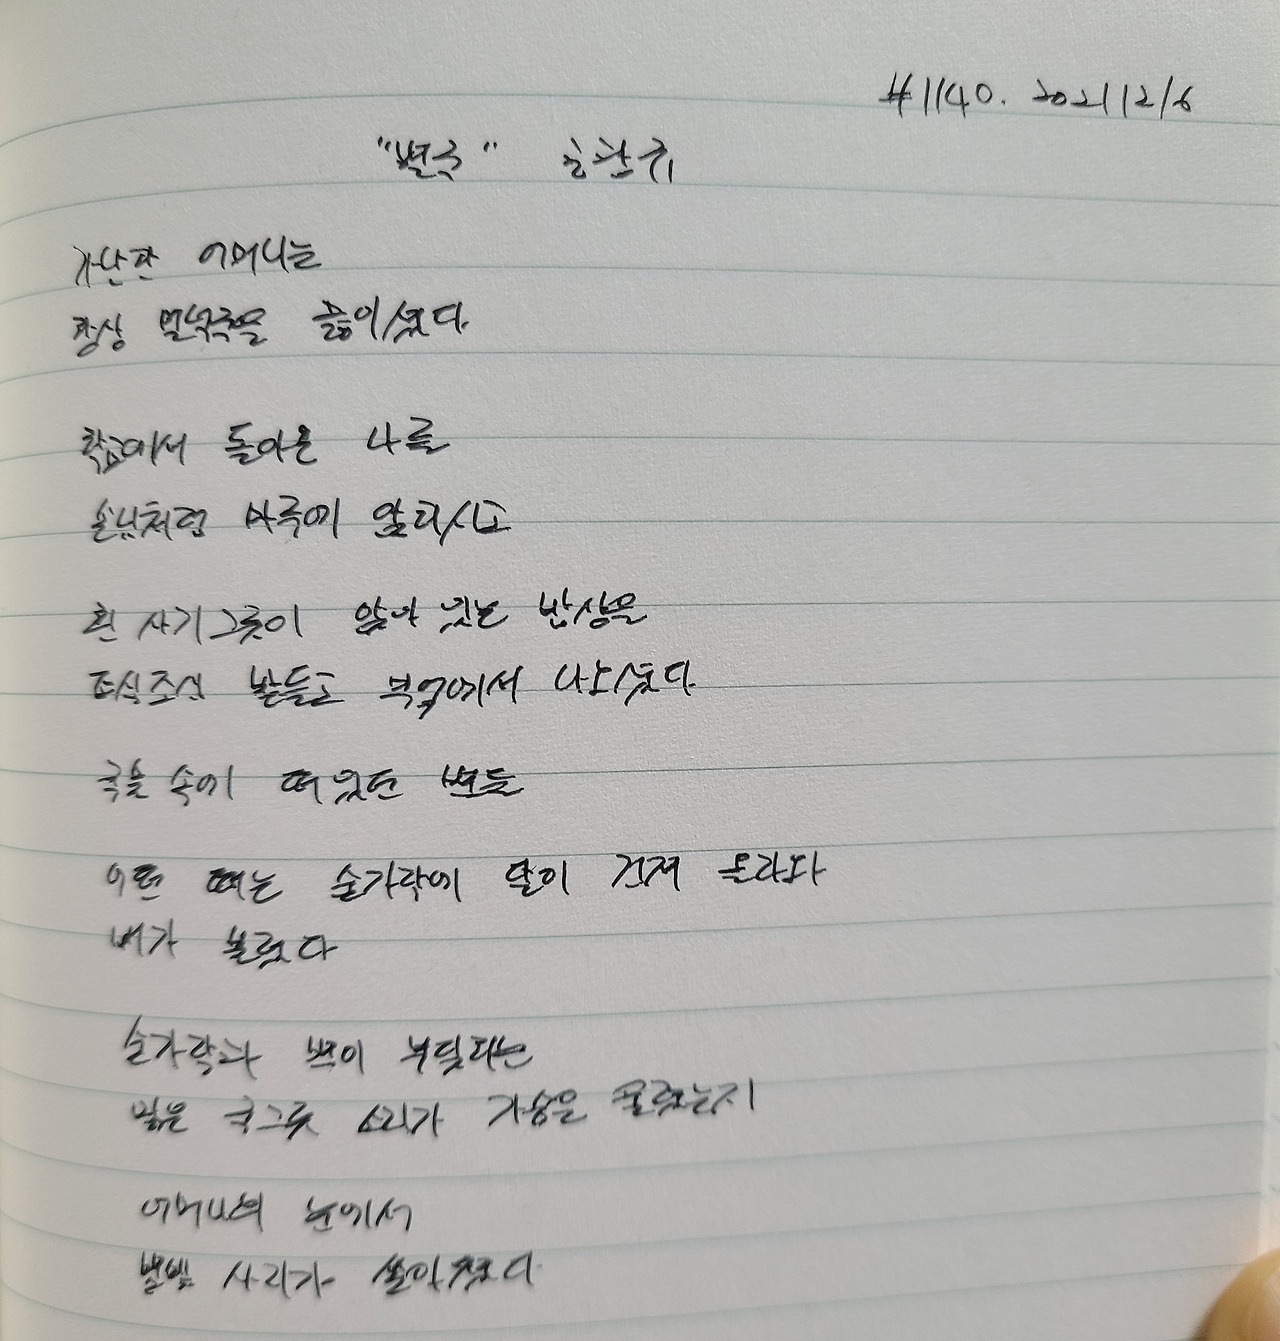 #1140. 2021 12/6
"별국" 공광규
가난한 어머니는
항상 멀덕국을 끓이셨다
학교에서 돌아온 나를
손님처럼 마루에 앉히시고
흰 사기그릇이 앉아 있는 밥상을
조심조심 받들고 부엌에서 나오셨다
국물 속에 떠 있던 별들
어떤 때는 숟가락에 달이 건져 올라와
배가 불렀다
숟가락과 별이 부딪치는
맑은 국그릇 소리가 가슴을 울렸는지
어머니의 눈에서
별빛 사리가 쏟아졌다